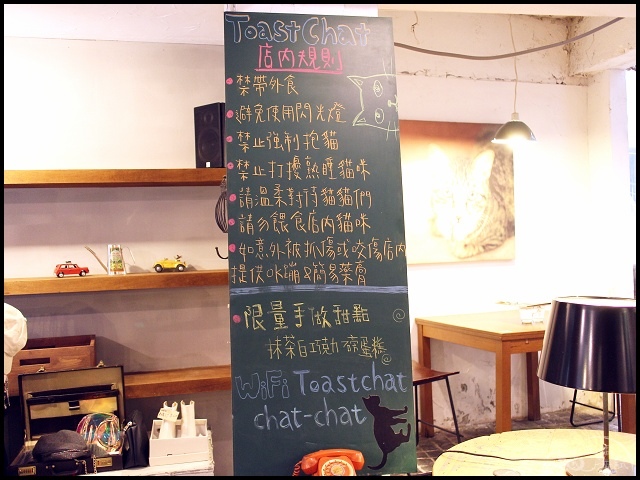 Toast Chat
店內規則
禁帶外食
避免使用閃光燈
禁止強制抱貓
禁止打擾熟睡貓咪
請溫柔對待貓貓們
請勿餵食店內貓咪
如意外被抓傷或咬傷店內
提供OK繃&簡易藥膏
限量手做甜點
抹茶白巧力磅蛋糕
WiFi Toastchat
chat-chat